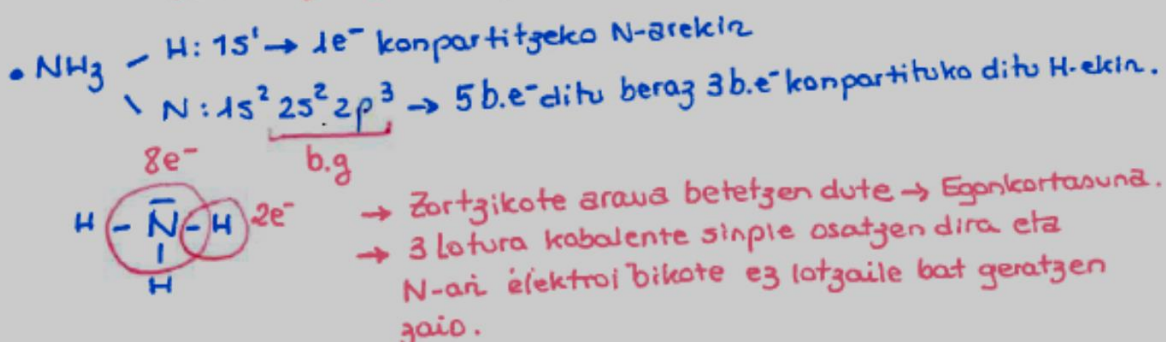 • NH₃ - H: 1s¹ → 1e⁻ konpartitzeko N-arekin
\ N: 1s² 2s² 2p³ → 5 b.e⁻ ditu beraz 3 b.e⁻ konpartituko ditu H-ekin.
8e⁻ b.g
H - N - H 2e⁻ → Zortzikote araua betetzen dute → Egonkortasuna.
H → 3 Lotura kobalente sinple osatzen dira eta
N-ari elektroi bikote ez lotzaile bat geratzen
zaio.